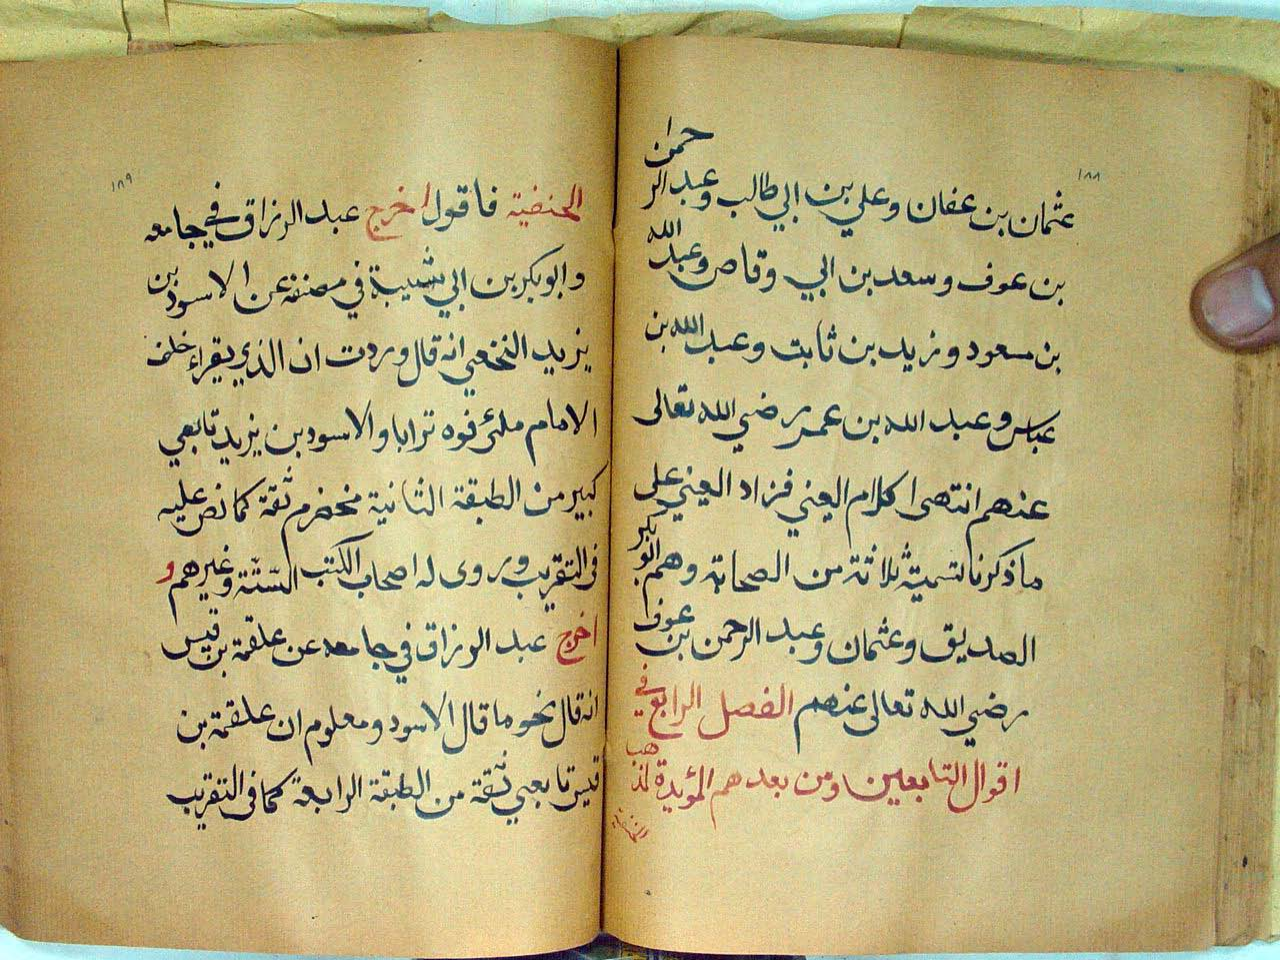 ١٨٨
عثمان بن عفان وعلي بن ابي طالب وعبد الرحمن
بن عوف وسعد بن ابي وقاص وعبد الله
بن مسعود وزيد بن ثابت وعبد الله بن
عباس وعبد الله بن عمر رضي الله تعالى
عنهم انتهى كلام العيني فزاد العيني على
ما ذكرنا تسمية ثلاثة من الصحابة وهم ابو بكر
الصديق وعثمان وعبد الرحمن بن عوف
رضي الله تعالى عنهم الفصل الرابع في
اقوال التابعين ومن بعدهم المؤيدة لمذهب
الحنفية
١٨٩
الحنفية فاقول اخرج عبد الرزاق في جامعه
وابو بكر بن ابي شيبة في مصنفه عن الاسود بن
يزيد النخعي انه قال وردت ان الذي يقراء خلف
الامام ملئ فوه ترابا والاسود بن يزيد تابعي
كبير من الطبقة الثانية مخضرم ثقة كما نص عليه
في التقريب وروى له اصحاب الكتب الستة وغيرهم و
اخرج عبد الرزاق في جامعه عن علقمة بن قيس
انه قال نحو ما قال الاسود ومعلوم ان علقمة بن
قيس تابعي ثقة من الطبقة الرابعة كما في التقريب